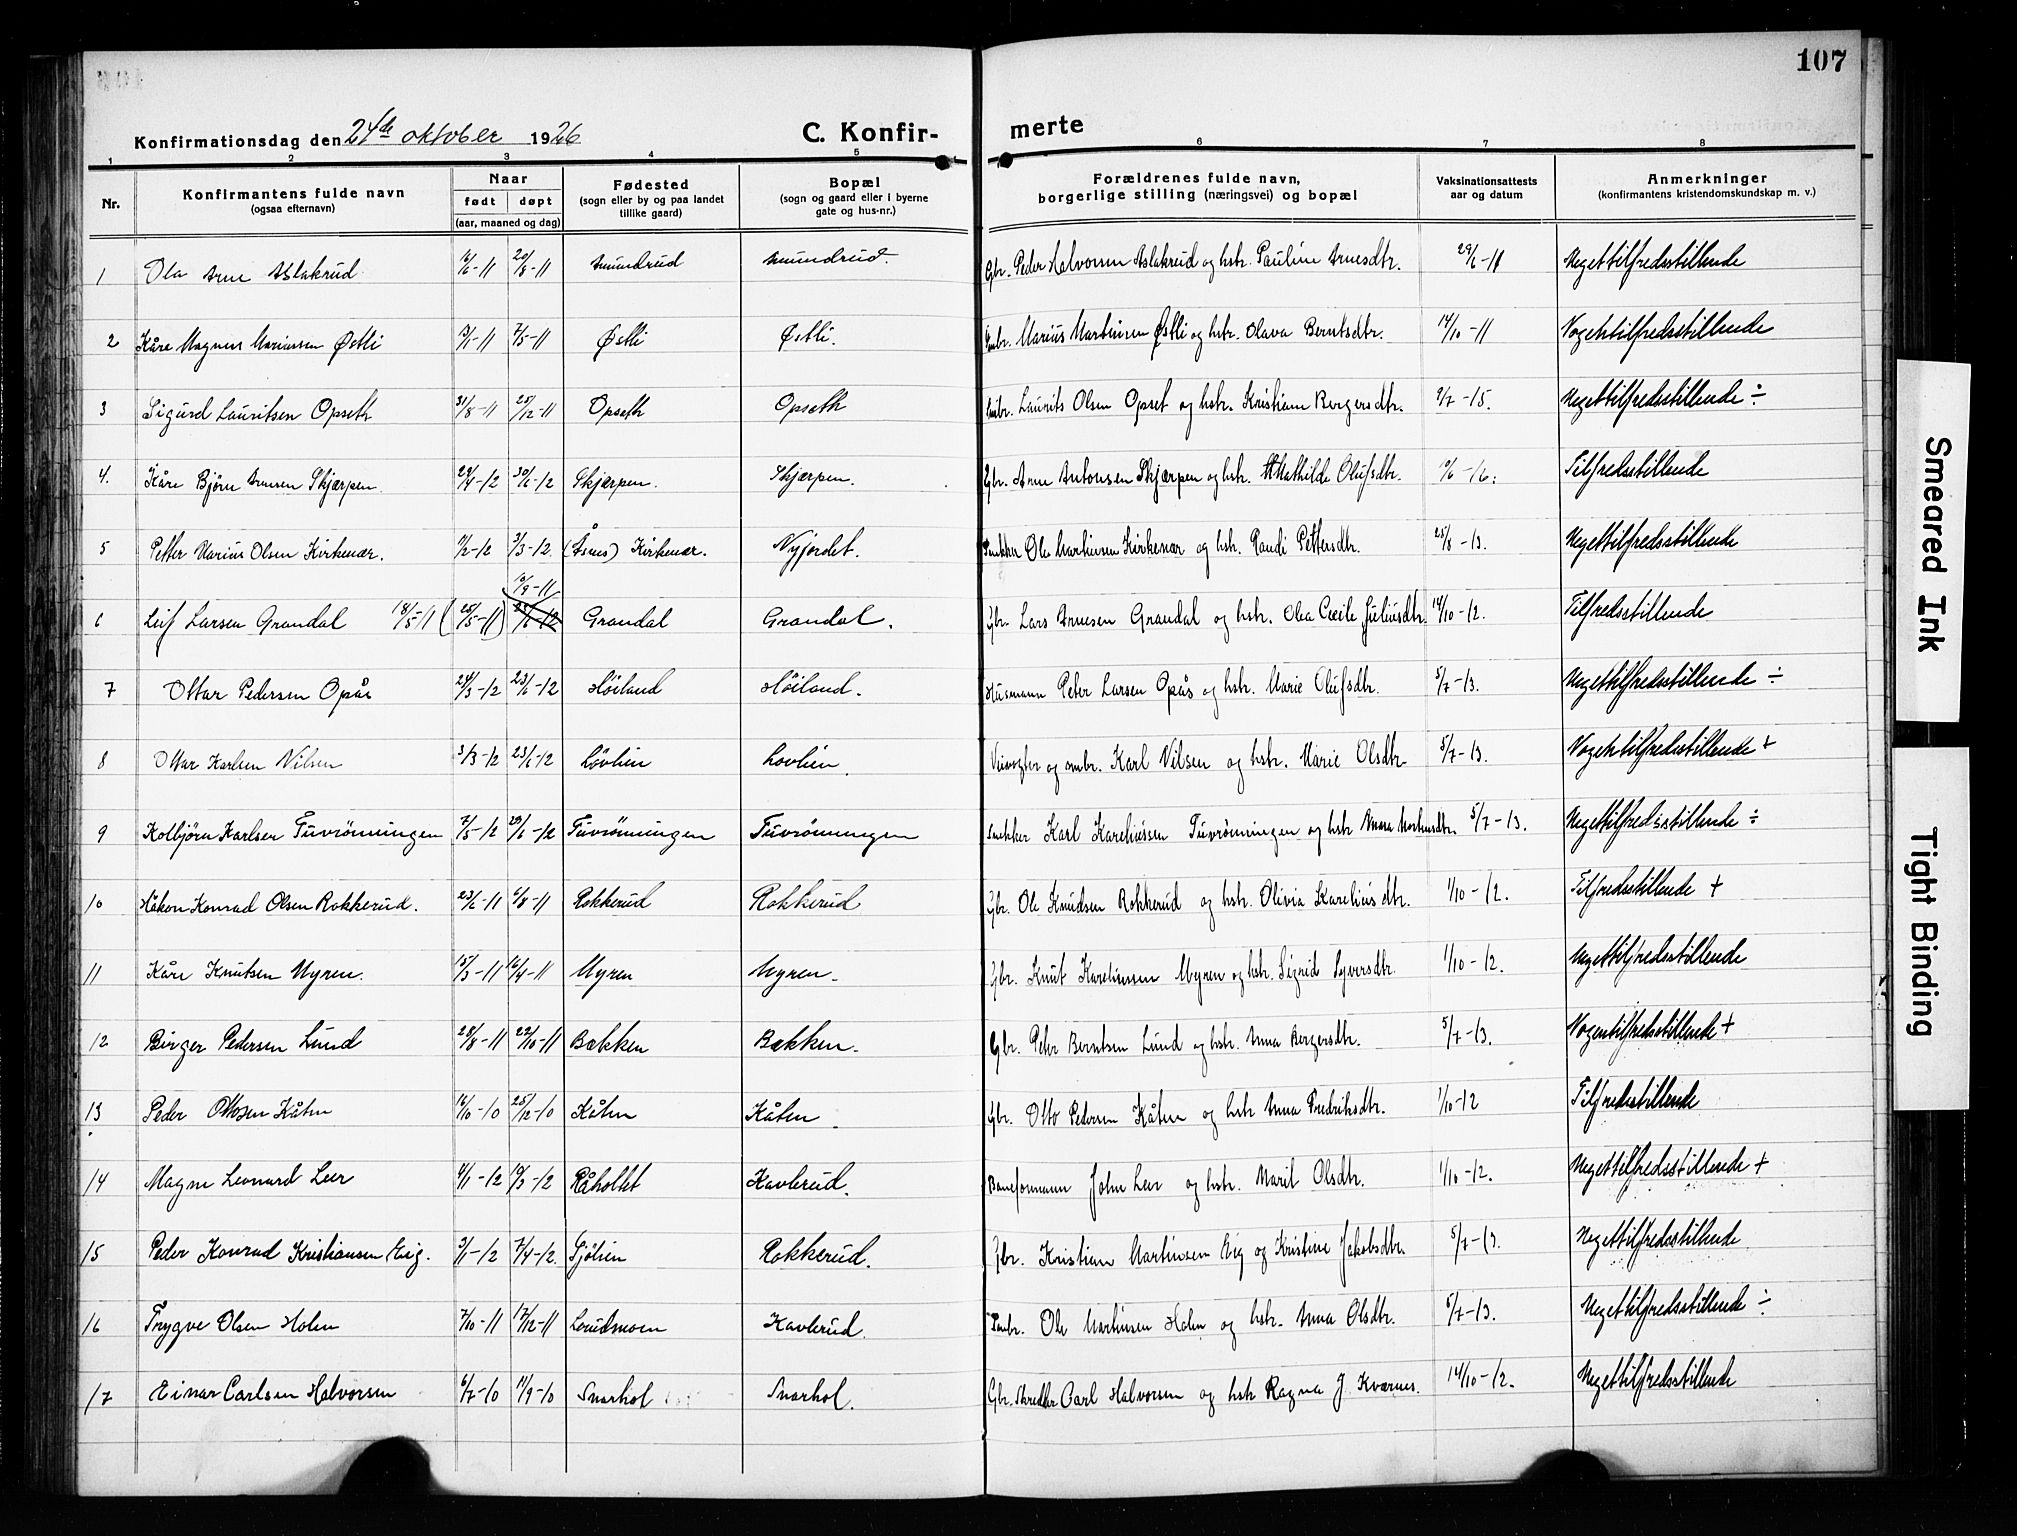 107
Konfirmationsdag den 24de oktober 1926 C. Konfir- merte
1 2 3 4 5 6 7 8
Nr. Konfirmantens fulde navn (ogsaa efternavn) Naar født døpt (aar, maaned og dag) Fødested (sogn eller by og paa landet tillike gaard) Bopæl (sogn og gaard eller i byerne gate og hus-nr.) Forældrenes fulde navn, borgerlige stilling (næringsvei) og bopæl Vaksinationsattests aar og datum Anmerkninger (konfirmantens kristendomskundskap m. v.)
1 Ola Arne Aslakrud 6/6-11 20/8-11 Amundrud Amundrud. Gbr. Peder Halvorsen Aslakrud og hstr. Pauline Arnesdtr. 29/6-11 Megettilfredsstillende
2 Kåre Magnus Mariussen Østli 3/1-11 7/5-11 Østli Østli. Marius Martinsen Østli og hstr. Olava Berntsdtr. 14/10-11 Nogetstilfredsstillende
3 Sigurd Lauritsen Opseth 31/8-11 25/12-11 Opseth Opseth Laurits Olsen Opset og hstr. Kristiane Bergersdtr. 9/7-15. Megettilfredsstillende ÷
4. Kåre Bjørn Arnesen Skjærpen 29/4-12 30/6-12 Skjærpen. Skjærpen. Gbr. Arne Antonsen Skjærpen og hstr. Mathilde Olufsdtr. 10/6-16. Tilfredsstillende
5 Petter Marius Olsen Kirkenær. 1/2-12 3/3-12. (Åsnes) Kirkenær. Nyjordet. Snekker Ole Martinsen Kirkenær og hstr. Randi Pettersdtr. 25/8-13. Megettilfredsstillende
10/9-11
6 Leif Larsen Grandal 18/5-11 (25/5-11) Grandal Grandal. Gbr. Lars Arnesen Grandal og hstr. Olea Cecilie Juliusdtr. 14/10-12. Tilfredsstillende
7 Ottar Pedersen Opås 24/3-12 23/6-12 Høiland Høiland. Husmann Peter Larsen Opås og hstr. Marie Olufsdtr. 5/7-13. Megettilfredsstillende ÷
8 Ottar Karlsen Nilsen 3/3-12 23/6-12 Løvlien Løvlien. Veivogter og smbr. Karl Nilsen og hstr. Marie Olsdtr 5/7-13. Nogetstilfredsstillende +
9 Kolbjørn Karlsen Tuvrønningen 7/5-12 29/6-12 Tuvrønningen Tuvrønningen Snekker Karl Kareliussen Tuvrønningen og hstr Anna Martinsdtr. 5/7-13. Megettilfredsstillende ÷
10 Håkon Konrad Olsen Rokkerud. 23/6-11 6/8-11 Rokkerud Rokkerud Gbr. Ole Knudsen Rokkerud og hstr. Olivia Kareliusdtr. 1/10-12. Tilfredsstillende +
11 Kåre Knutsen Myren. 15/3-11 16/4-11 Myren Myren. Gbr. Knut Kareliussen Myren og hstr. Sigrid Syversdtr. 1/10-12. Megettilfredsstillende
12 Birger Pedersen Lund 28/8-11 22/10-11 Bækken Bækken. Gbr. Peter Berntsen Lund og hstr. Anna Bergersdtr. 5/7-13. Nogentilfredsstillende +
13 Peder Ottosen Kåten 16/10-10 25/12-10 Kåten Kåten. Gbr. Otto Pedersen Kåten og hstr Anna Fredriksdtr. 1/10-12 Tilfredsstillende
14 Magne Leonard Leer 4/1-12 10/3-12 Råholtet Kavlerud. Baneformann John Leer og hstr. Marit Olsdtr. 1/10-12. Megettilfredsstillende +
15 Peder Konrad Kristiansen Eig. 3/1-12 7/4-12. Sjølien Rokkerud. Gbr. Kristian Martinsen Eig og Kristine Jakobsdtr. 5/7-13. Megettilfredsstillende
16 Trygve Olsen Holen 7/10-11 17/12-11 Lerudsmoen Kavlerud. Ole Martinsen Holen og hstr. Anna Olsdtr. 5/7-13. Megettilfredsstillende ÷
17 Einar Carlsen Halvorsen 6/7-10 11/9-10 Snarhol Snarhol. Gbr. Skredder Carl Halvorsen og hstr Ragna J. Kværnes. 14/10-12. Megettilfredsstillende
Smeared Ink
Tight Binding